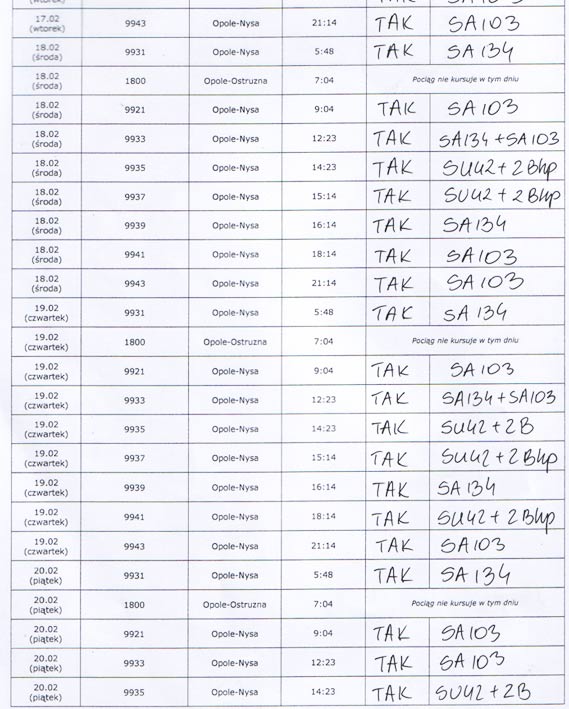 17.02 (wtorek) 9943 Opole-Nysa 21:14 TAK SA103
18.02 (środa) 9931 Opole-Nysa 5:48 TAK SA134
18.02 (środa) 1800 Opole-Ostruzna 7:04 Pociąg nie kursuje w tym dniu
18.02 (środa) 9921 Opole-Nysa 9:04 TAK SA103
18.02 (środa) 9933 Opole-Nysa 12:23 TAK SA134+SA103
18.02 (środa) 9935 Opole-Nysa 14:23 TAK SU42+2Bhp
18.02 (środa) 9937 Opole-Nysa 15:14 TAK SU42+2Bhp
18.02 (środa) 9939 Opole-Nysa 16:14 TAK SA134
18.02 (środa) 9941 Opole-Nysa 18:14 TAK SA103
18.02 (środa) 9943 Opole-Nysa 21:14 TAK SA103
19.02 (czwartek) 9931 Opole-Nysa 5:48 TAK SA134
19.02 (czwartek) 1800 Opole-Ostruzna 7:04 Pociąg nie kursuje w tym dniu
19.02 (czwartek) 9921 Opole-Nysa 9:04 TAK SA103
19.02 (czwartek) 9933 Opole-Nysa 12:23 TAK SA134+SA103
19.02 (czwartek) 9935 Opole-Nysa 14:23 TAK SU42+2B
19.02 (czwartek) 9937 Opole-Nysa 15:14 TAK SU42+2Bhp
19.02 (czwartek) 9939 Opole-Nysa 16:14 TAK SA134
19.02 (czwartek) 9941 Opole-Nysa 18:14 TAK SU42+2Bhp
19.02 (czwartek) 9943 Opole-Nysa 21:14 TAK SA103
20.02 (piątek) 9931 Opole-Nysa 5:48 TAK SA134
20.02 (piątek) 1800 Opole-Ostruzna 7:04 Pociąg nie kursuje w tym dniu
20.02 (piątek) 9921 Opole-Nysa 9:04 TAK SA103
20.02 (piątek) 9933 Opole-Nysa 12:23 TAK SA103
20.02 (piątek) 9935 Opole-Nysa 14:23 TAK SU42+2B